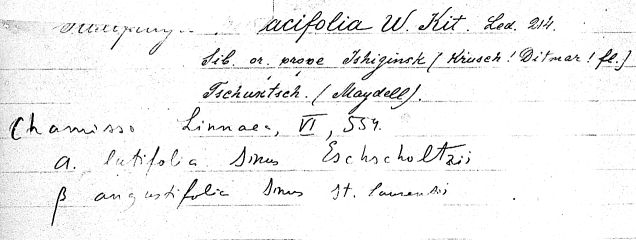 acifolia W. Kit. Led. 214.
Sib. or. prope Ishiginsk (Krusch! Ditmar! fl.)
Tschuktsch. (Maydell).
Chamisso Linnaea, VI, 554.
α. latifolia Sinus Eschscholtzii
β angustifolia Sinus St. Laurensii